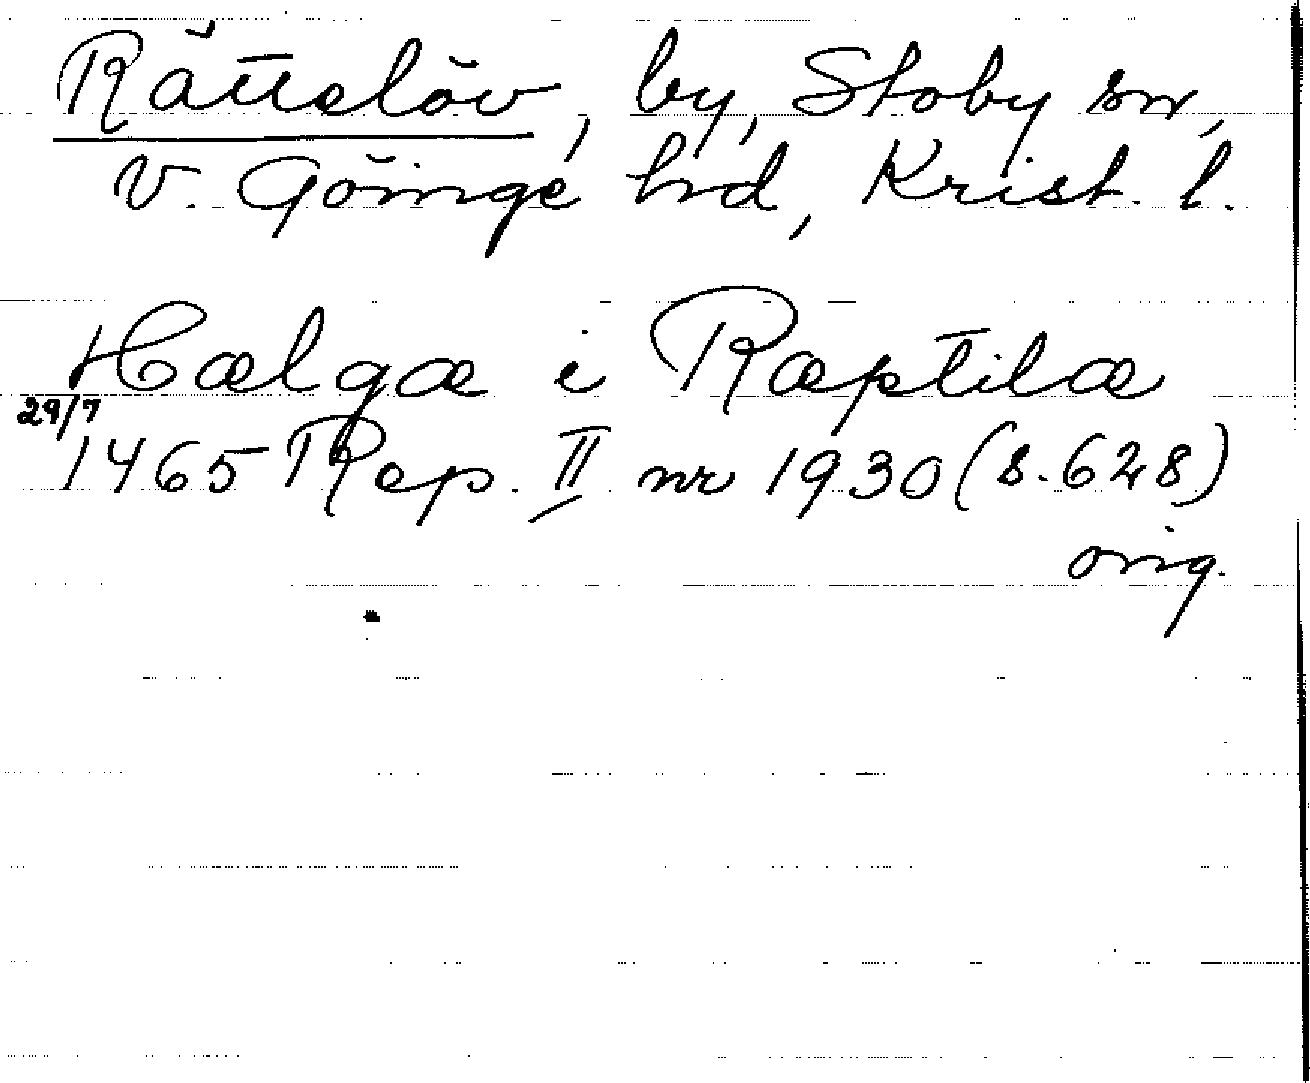 Rättelöv, by, Stoby sn,
V. Göinge hd, Krist. l.
Hælgæ i Ræptilæ
29/7
1465 Rep. II nr 1930 (s. 628)
orig.